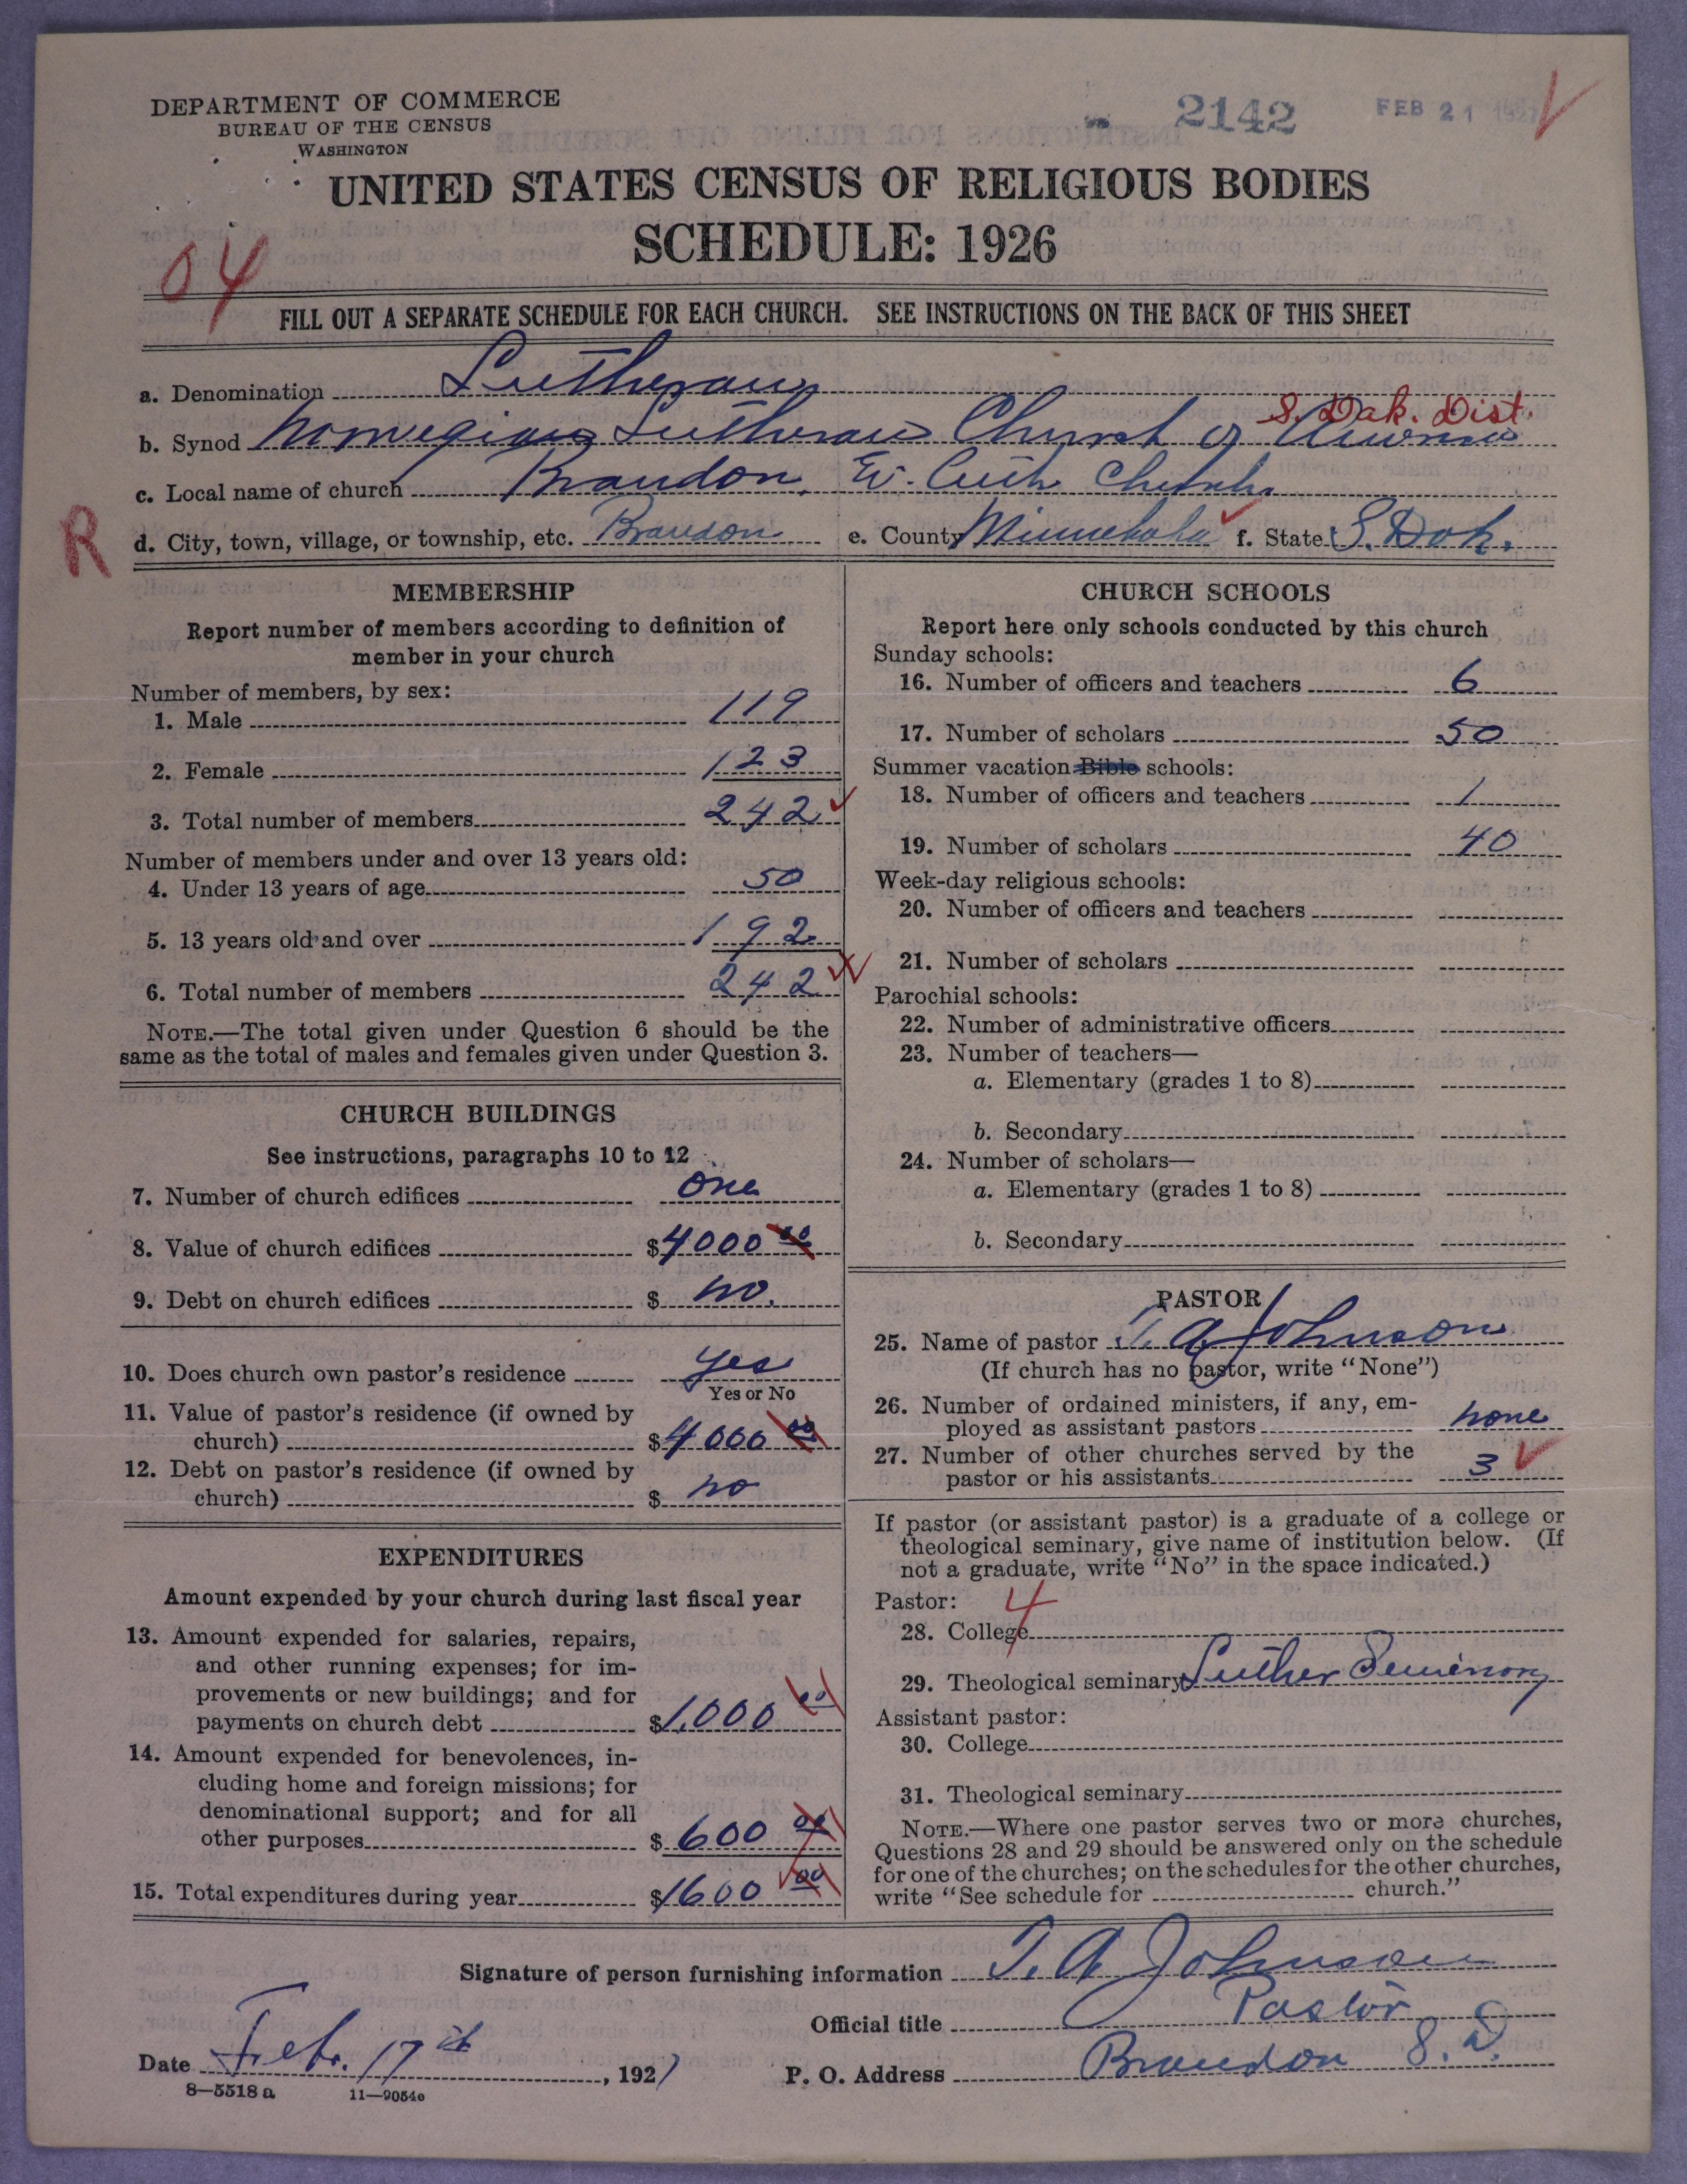 DEPARTMENT OF COMMERCE
BUREAU OF THE CENSUS
WASHINGTON
2142 FEB 21 1927
UNITED STATES CENSUS OF RELIGIOUS BODIES
SCHEDULE: 1926
04
FILL OUT A SEPARATE SCHEDULE FOR EACH CHURCH. SEE INSTRUCTIONS ON THE BACK OF THIS SHEET
a. Denomination Lutheran
S. Dak. Dist.
b. Synod Norwegian Lutheran Church of America
c. Local name of church Brandon Ev. Luth Church
R
d. City, town, village, or township, etc. Brandon e. County Minnehaha f. State S. Dak.
MEMBERSHIP
Report number of members according to definition of
member in your church
Number of members, by sex:
1. Male 119
2. Female 123
3. Total number of members 242
Number of members under and over 13 years old:
4. Under 13 years of age 50
5. 13 years old and over 192
6. Total number of members 242
NOTE.—The total given under Question 6 should be the
same as the total of males and females given under Question 3.
CHURCH BUILDINGS
See instructions, paragraphs 10 to 12
7. Number of church edifices one
8. Value of church edifices $4000 00
9. Debt on church edifices $ no.
10. Does church own pastor's residence yes
Yes or No
11. Value of pastor's residence (if owned by
church) $4000 00
12. Debt on pastor's residence (if owned by
church) $ no
EXPENDITURES
Amount expended by your church during last fiscal year
13. Amount expended for salaries, repairs,
and other running expenses; for im-
provements or new buildings; and for
payments on church debt $1,000 00
14. Amount expended for benevolences, in-
cluding home and foreign missions; for
denominational support; and for all
other purposes $600 00
15. Total expenditures during year $1600 00
CHURCH SCHOOLS
Report here only schools conducted by this church
Sunday schools:
16. Number of officers and teachers 6
17. Number of scholars 50
Summer vacation Bible schools:
18. Number of officers and teachers 1
19. Number of scholars 40
Week-day religious schools:
20. Number of officers and teachers
21. Number of scholars
Parochial schools:
22. Number of administrative officers
23. Number of teachers—
a. Elementary (grades 1 to 8)
b. Secondary
24. Number of scholars—
a. Elementary (grades 1 to 8)
b. Secondary
PASTOR
25. Name of pastor T. A. Johnson
(If church has no pastor, write "None")
26. Number of ordained ministers, if any, em-
ployed as assistant pastors none
27. Number of other churches served by the
pastor or his assistants 3
If pastor (or assistant pastor) is a graduate of a college or
theological seminary, give name of institution below. (If
not a graduate, write "No" in the space indicated.)
Pastor: 4
28. College
29. Theological seminary Luther Seminary
Assistant pastor:
30. College
31. Theological seminary
NOTE.—Where one pastor serves two or more churches,
Questions 28 and 29 should be answered only on the schedule
for one of the churches; on the schedules for the other churches,
write "See schedule for church."
Signature of person furnishing information T. A. Johnson
Official title Pastor
Date Feb. 17th, 1927 P. O. Address Brandon S. D.
8—5518 a 11—9054e